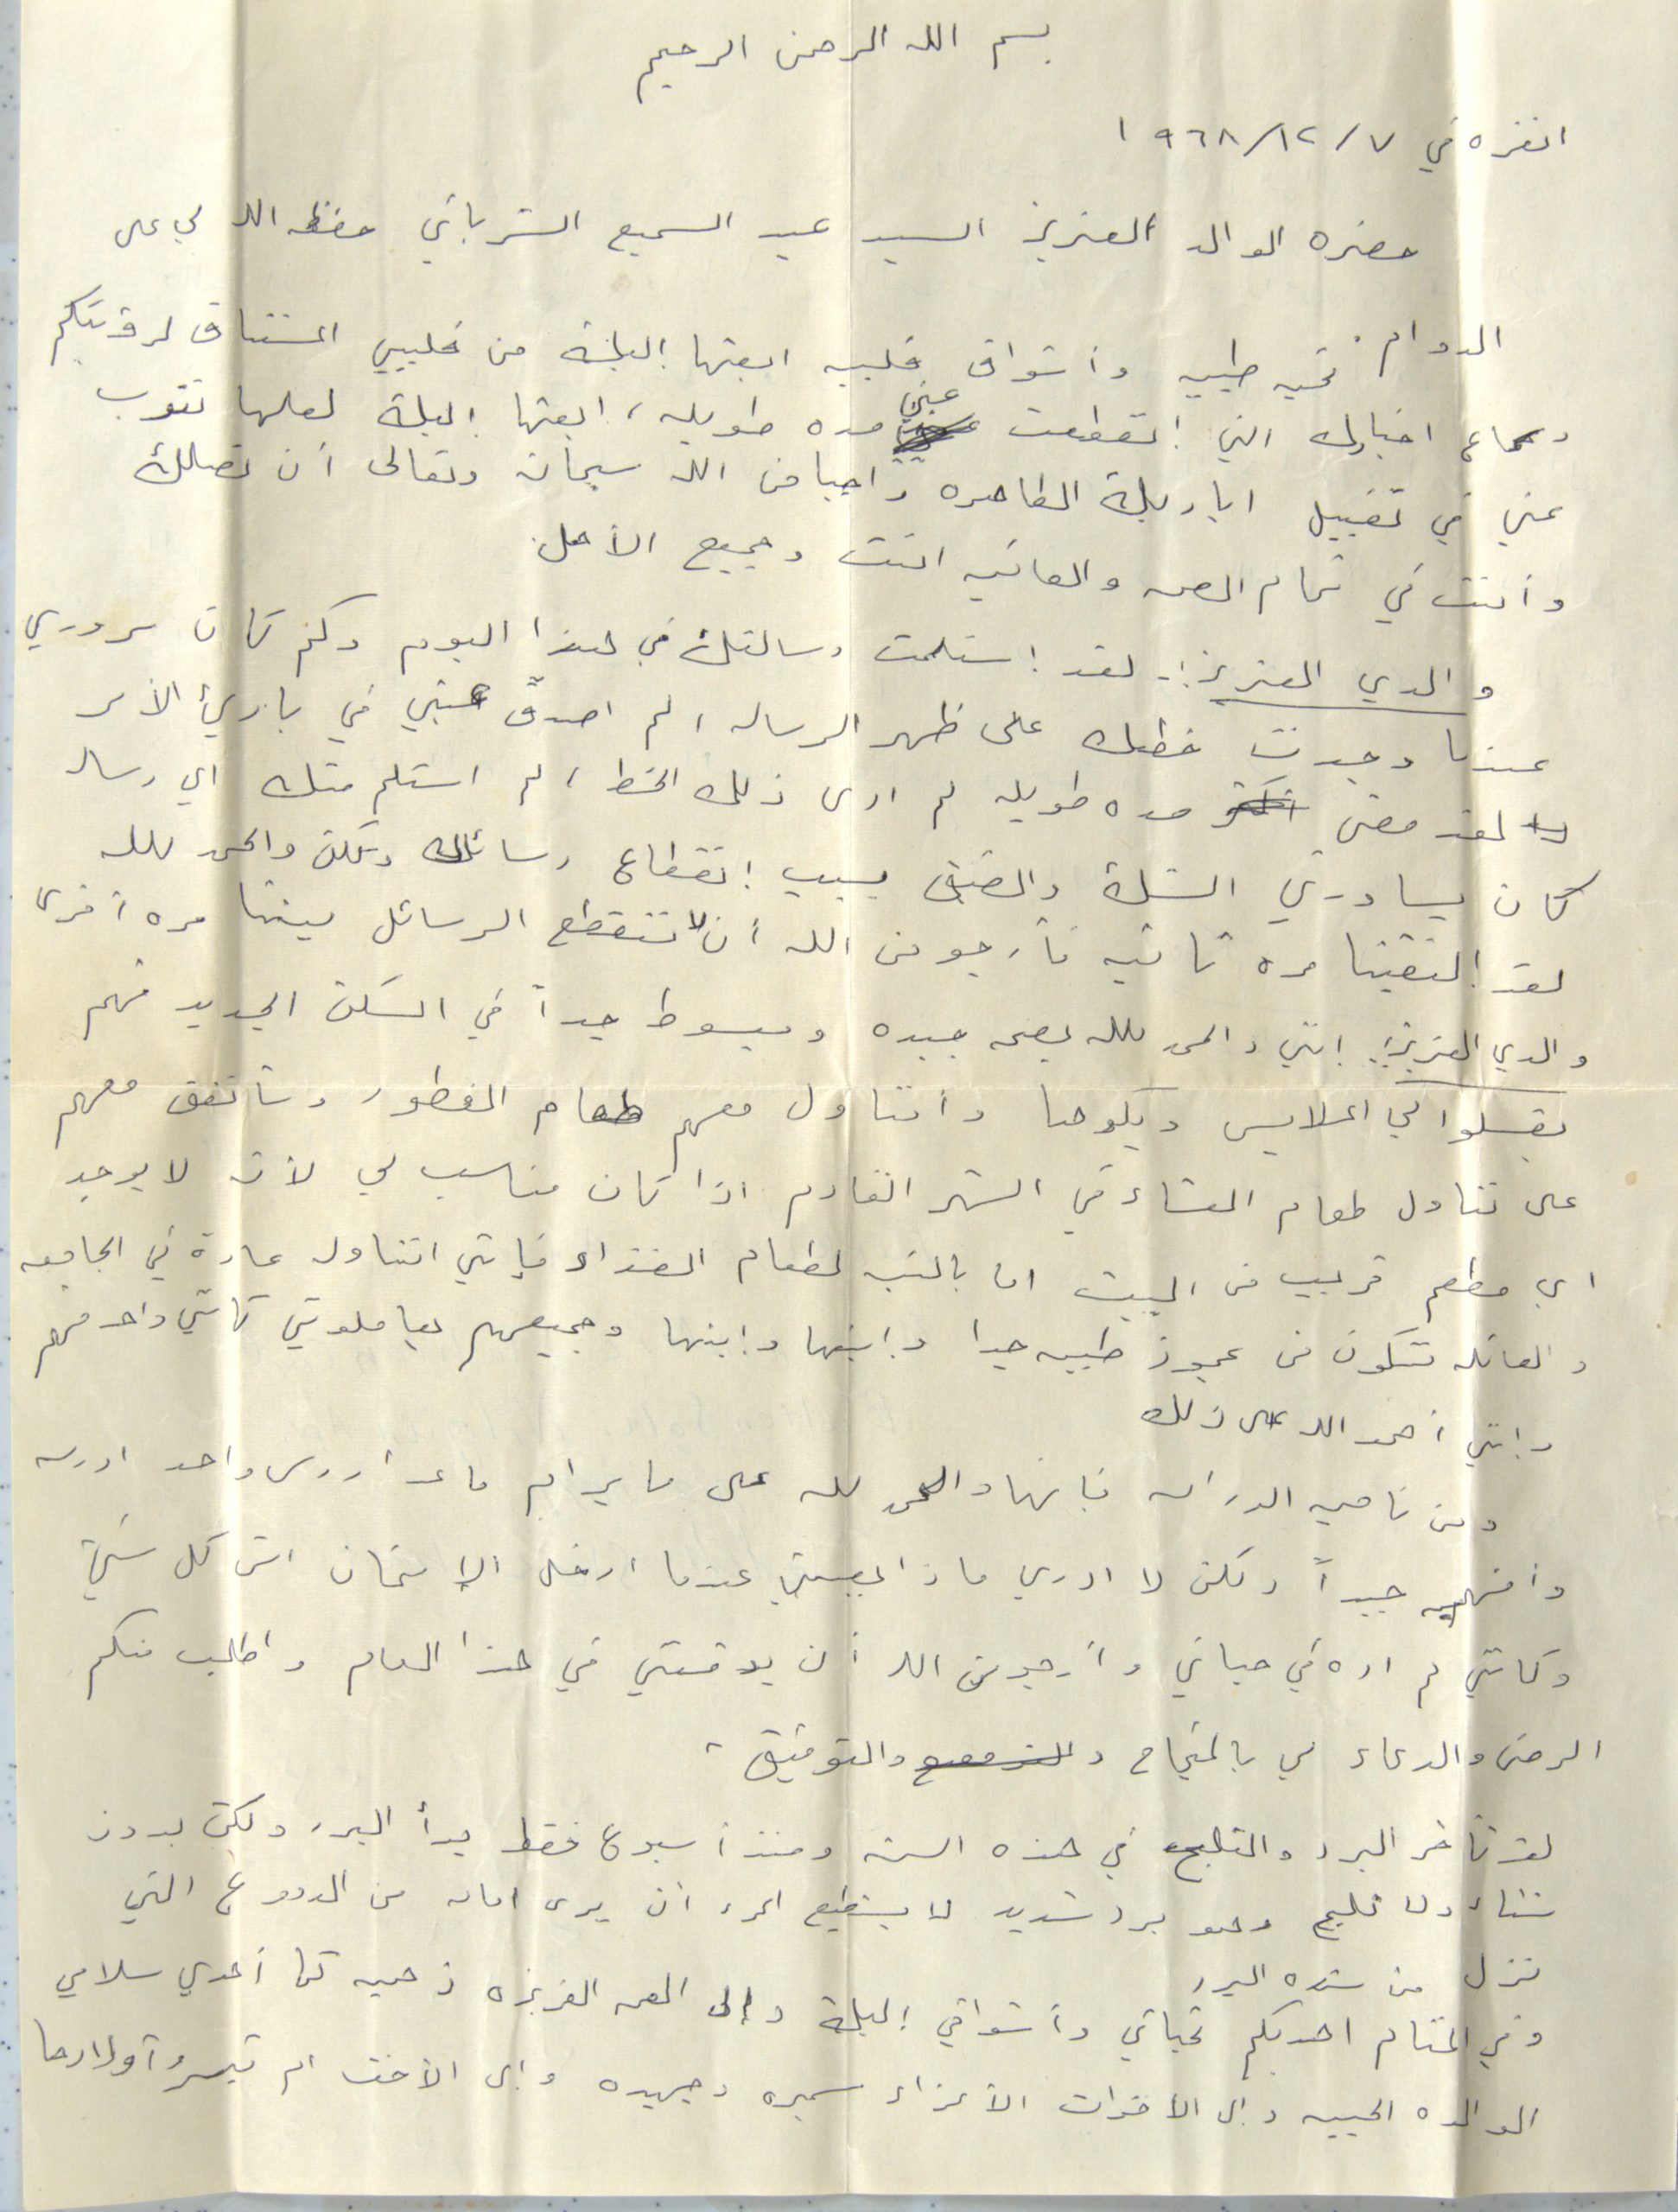 بسم الله الرحمن الرحيم
انقره في ٧/١٢/١٩٦٨
حضره الوالد العزيز السيد عبد السميع الشرباتي حفظه الله لي على
الدوام تحيه طيبه وأشواق قلبيه ابعثها إليك من قلبي المشتاق لرؤيتكم
وسماع اخبارك التي إنقطعت عني مده طويله، ابعثها إليك لعلها تنوب
عني في تقبيل اياديك الطاهره راجيا من الله سبحانه وتعالى أن تصلك
وأنت في تمام الصحه والعافيه انت وجميع الأهل.
والدي العزيز:- لقد إستلمت رسالتك في هذا اليوم وكم كان سروري
عندما وجدت خطك على ظهر الرساله، لم اصدق عيني في باديء الأمر
لقد مضى مده طويله لم ارى ذلك الخط، لم استلم منك اي رساله
كان يساورني الشك والضيق بسبب إنقطاع رسائلك ولكن والحمد لله
لقد إلتقينا مره ثانيه فأرجو من الله أن لا تنقطع الرسائل بيننا مره أخرى
والدي العزيز: إنني والحمد لله بصحه جيده ومبسوط جيداً في السكن الجديد فهم
يغسلوا لي الملابس ويكوها وأتناول معهم طعام الفطور وسأتفق معهم
على تناول طعام العشاء في الشهر القادم اذا كان مناسب لي لأنه لا يوجد
اي مطعم قريب من البيت اما بالنسبه لطعام الغذاء فإنني اتناوله عادة في الجامعه
والعائله تتكون من عجوز طيبه جدا وإبنها وإبنتها وجميعهم يعاملوني كأنني واحد منهم
وإنني أحمد الله على ذلك
ومن ناحيه الدراسه فإنها والحمد لله على ما يرام ما عدا درس واحد ادرسه
وأفهمه جيداً ولكن لا ادري ماذا يصيبني عندما ادخل الإمتحان انسى كل شيء
وكأنني لم اره في حياتي وأرجو من الله أن يوفقني في هذا العام واطلب منكم
الرضى والدعاء لي بالنجاح والتوفيق.
لقد تأخر البرد والثلج في هذه السنه ومنذ أسبوع فقط بدأ البرد ولكن بدون
شتاء ولا ثلج وهو برد شديد لا يستطيع المرء أن يرى امامه من الدموع التي
تنزل من شده البرد
وفي الختام اهديكم تحياتي وأشواقي إليك وإلى العمه العزيزه ذهبيه كما أهدي سلامي
الوالده الحبيبه وإلى الأخوات الأعزاء سميره وجهيده وإلى الأخت ام تيسير وأولادها